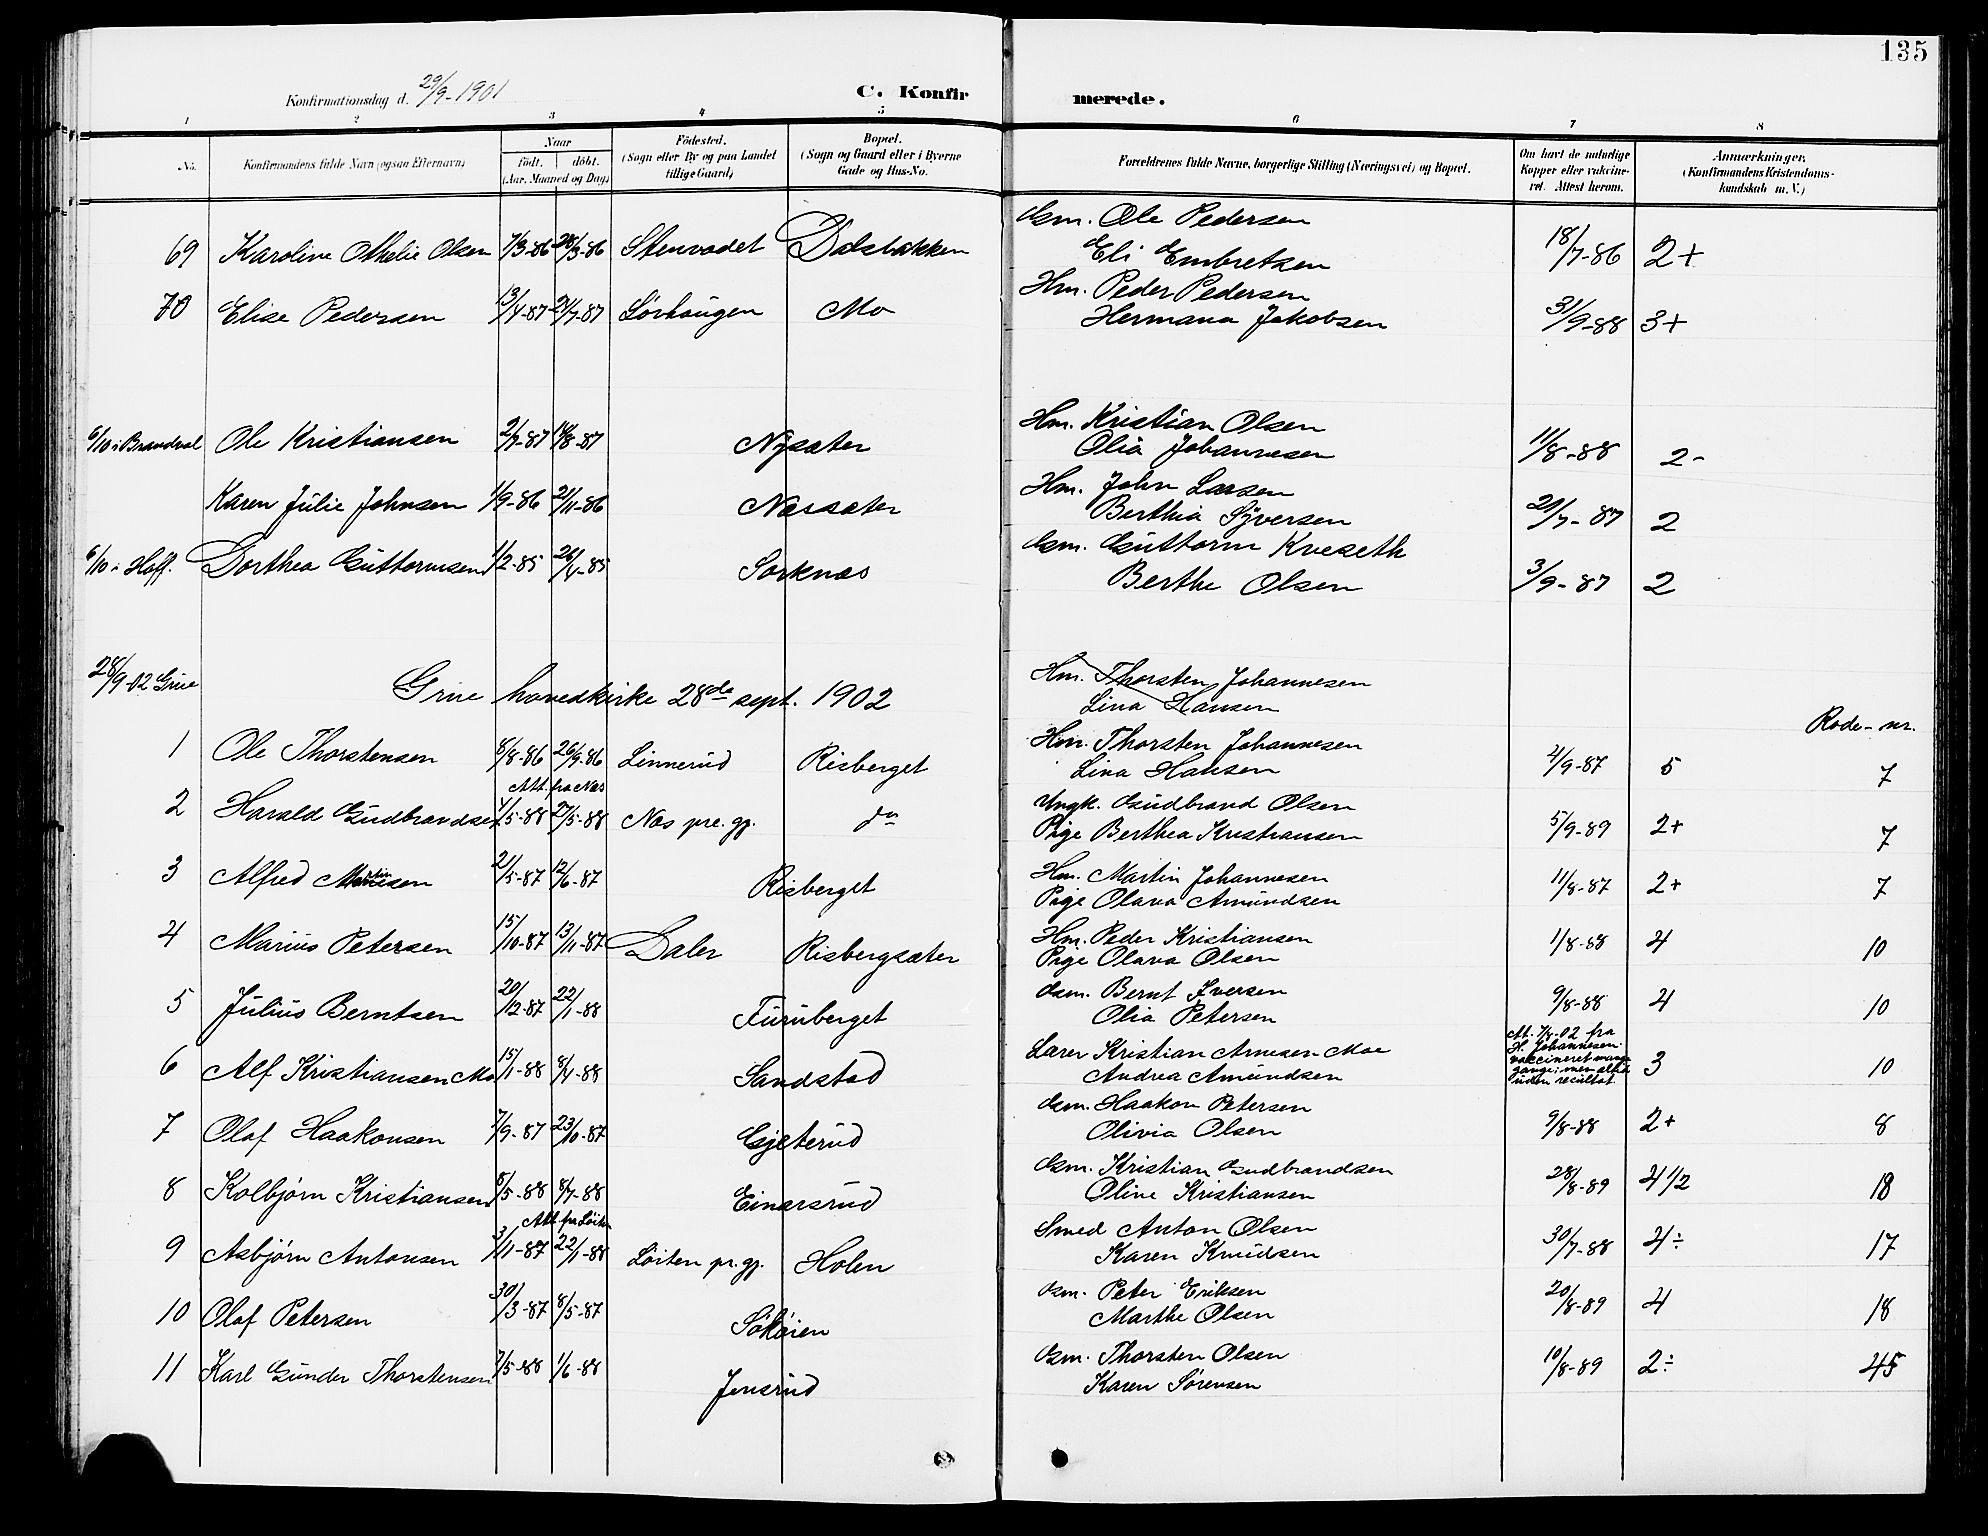 135
Konfirmationsdag d. 29/9-1901
C. Konfirmerede.
1 2 3 4 5 6 7 8
No. Konfirmandens fulde Navn (ogsaa Efternavn) Naar født. døbt. (Aar, Maaned og Dag) Fødested. (Sogn eller By og paa Landet tillige Gaard) Bopæl. (Sogn og Gaard eller i Byerne Gade og Hus-No. Forældrenes fulde Navne, borgerlige Stilling (Næringsvei) og Bopæl. Om havt de naturlige Kopper eller vaccineret. Attest herom. Anmærkninger. (Konfirmandens Kristendomskundskab m. V.)
69 Karoline Othelie Olsen 7/3-86 28/3-86 Stenvadet Dalsbakken Gsm. Ole Pedersen 18/7-86 2+
Eli Embretsen
70 Elise Pedersen 13/4-87 24/7-87 Sörhaugen Mo Hm. Peder Pedersen 31/9-88 3+
Hermana Jakobsen
6/10 i Brandval Ole Kristiansen 2/7-87 14/8-87 Nysæter Hm. Kristian Olsen 11/8-88 2-
Olia Johannesen
Karen Julie Johnsen 1/9-86 21/11-86 Næssæter Hm. John Larsen 29/7-87 2
Berthia Syversen
6/10 i Hoff. Dorthea Guttormsen 1/2-85 26/4-85 Sorknæs Gsm. Guttorm Kveseth 3/9-87 2
Berthe Olsen
28/9-02 Grue Grue hovedkirke 28de sept. 1902 Hm. Thorsten Johannesen
Lina Hansen
Rode-nr.
1 Ole Thorstensen 8/8-86 26/9-86 Linnerud Risberget Hm. Thorsten Johannesen 4/9-87 5 7
Lina Hansen
Att. fra Næs
2 Harald Gudbrandsen 1/5-88 27/5-88 Næs pre.gj. do Ungk. Gudbrand Olsen 5/9-89 2+ 7
Pige Berthea Kristiansen
3 Alfred Martinsen 21/5-87 12/6-87 Risberget Hm. Martin Johannesen 11/8-87 2+ 7
Pige Olava Amundsen
4 Marius Petersen 15/10-87 13/11-87 Daler Risbergsæter Hm. Peder Kristiansen 1/8-88 4 10
Pige Olava Olsen
5 Julius Berntsen 20/12-87 22/1-88 Furuberget Gsm. Bernt Iversen 9/8-88 4 10
Olia Petersen
6 Alf Kristiansen Mo 15/1-88 8/4-88 Sandstad Lærer Kristian Arnesen Moe At. 7/4-02 fra H. Johannesen vaccineret mange gange; men altid uden resultat 3 10
Andrea Amundsen
7 Olaf Haakonsen 7/9-87 23/10-87 Gjeterud Gsm. Haakon Petersen 9/8-88 2+ 8
Olivia Olsen
8 Kolbjørn Kristiansen 5/5-88 8/7-88 Einarsrud Gsm. Kristian Gudbrandsen 28/8-89 4 1/2 18
Oline Kristiansen
Att. fra Löiten
9 Asbjørn Antonsen 3/11-87 22/1-88 Löiten pr.gj. Holen Smed Anton Olsen 30/7-88 4÷ 17
Karen Knudsen
10 Olaf Petersen 30/3-87 8/5-87 Sökøien Gsm. Peter Eriksen 20/8-89 4 18
Marthe Olsen
11 Karl Gunder Thorstensen 7/5-88 1/6-88 Jensrud Gsm. Thorsten Olsen 10/8-89 2÷ 45
Karen Sørensen